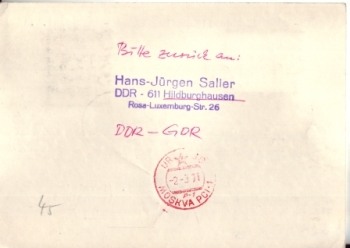 Bitte zurück an:
Hans-Jürgen Saller
DDR - 611 Hildburghausen
Rosa-Luxemburg-Str. 26
DDR - GDR
MOSKVA PCI-1
45